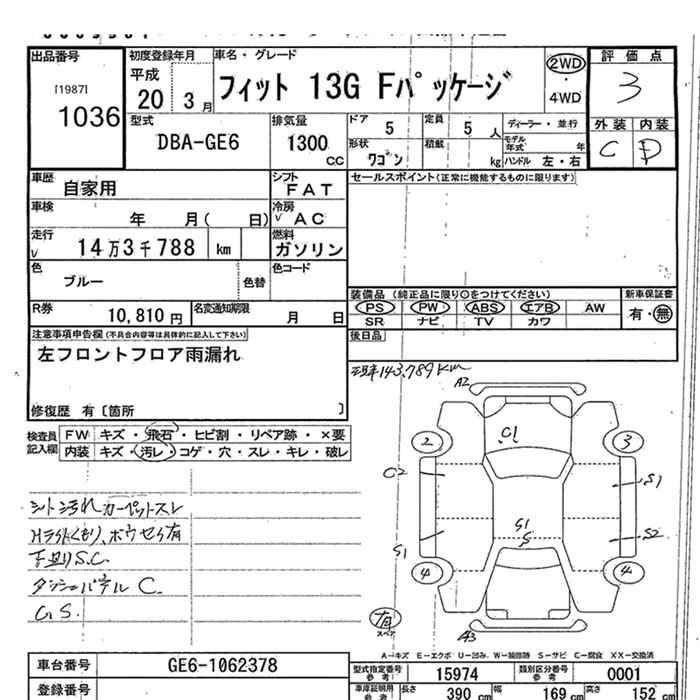 出品番号
[1987]
1036
初度登録年月
平成
20 3月
車名・グレード
フィット 13G Fパッケージ
2WD
・
4WD
評価点
3
外装 内装
C D
型式
DBA-GE6
排気量
1300
CC
ドア
5
定員
5 人
形状
ワゴン
積載
kg
ディーラー・並行
モデル年式 年
ハンドル 左・右
車歴
自家用
シフト
FAT
セールスポイント(正常に機能するものに限ります)
車検
年 月( 日)
冷房
AC
走行
14万3千788 km
燃料
ガソリン
色
ブルー
色替
色コード
R券
10,810円
名変通知期限
月 日
装備品(純正品に限り○をつけてください)
新車保証書
PS PW ABS エアB AW
有・無
SR ナビ TV カワ
後日品
注意事項申告欄(不具合内容等は具体的に記入して下さい)
左フロントフロア雨漏れ
修復歴 有〔箇所 〕
現車143,789km
検査員記入欄
FW キズ・飛石・ヒビ割・リペア跡・×要
内装 キズ・汚レ・コゲ・穴・スレ・キレ・破レ
シート汚れ カーペットスレ
Hライトくもり、ホウセイ有
下廻りS.C.
ダッシュパネル C.
G S.
A2
C1
2
3
C2
S1
S1
S
S2
S1
4
4
有
スペア
A3
A-キズ E-エクボ U-凹み W-補修跡 S-サビ C-腐食 XX-交換済
車台番号
GE6-1062378
登録番号
型式指定番号
参考
15974
類別区分番号
参考
0001
車庫証明用
参考
長さ 390 cm 幅 169 cm 高さ 152 cm